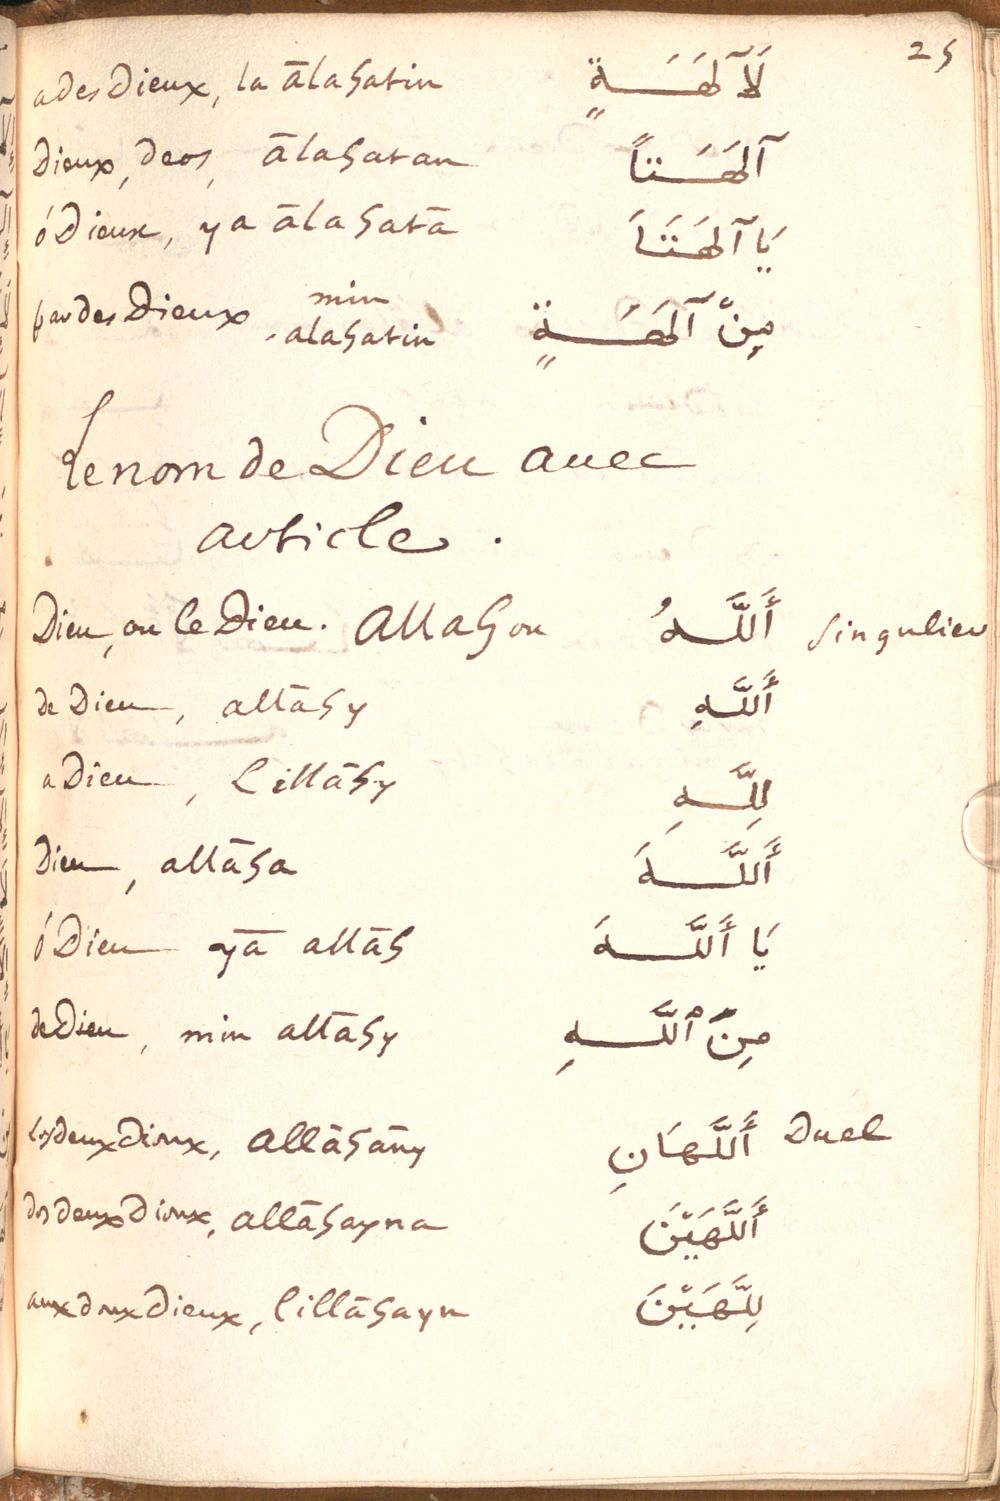 25
a des Dieux, la ālahatin لَآلَهَةٍ
Dieux, deos, ālahatan آلَهَتاً
ó Dieux, ya ālahatā يَا آلَهَتَاَ
par des Dieux min alahatin مِنْ آلَهَةٍ
Le nom de Dieu avec
article.
Dieu, ou le Dieu. Allahou أَللَّهُ singulier
de Dieu, allāhy أَللَّهِ
a Dieu, lillāhy لِلَّهِ
Dieu, allāha أَللَّهَ
ó Dieu yā allāh يَا أَللَّهَ
de Dieu, min allāhy مِنْ ٱللَّهِ
les deux dieux, allāhāny أَللَّهَانِ Duel
des deux Dieux, allāhayna أَللَّهَيْنَ
aux deux Dieux, lillāhayn لِلَّهَيْنَ